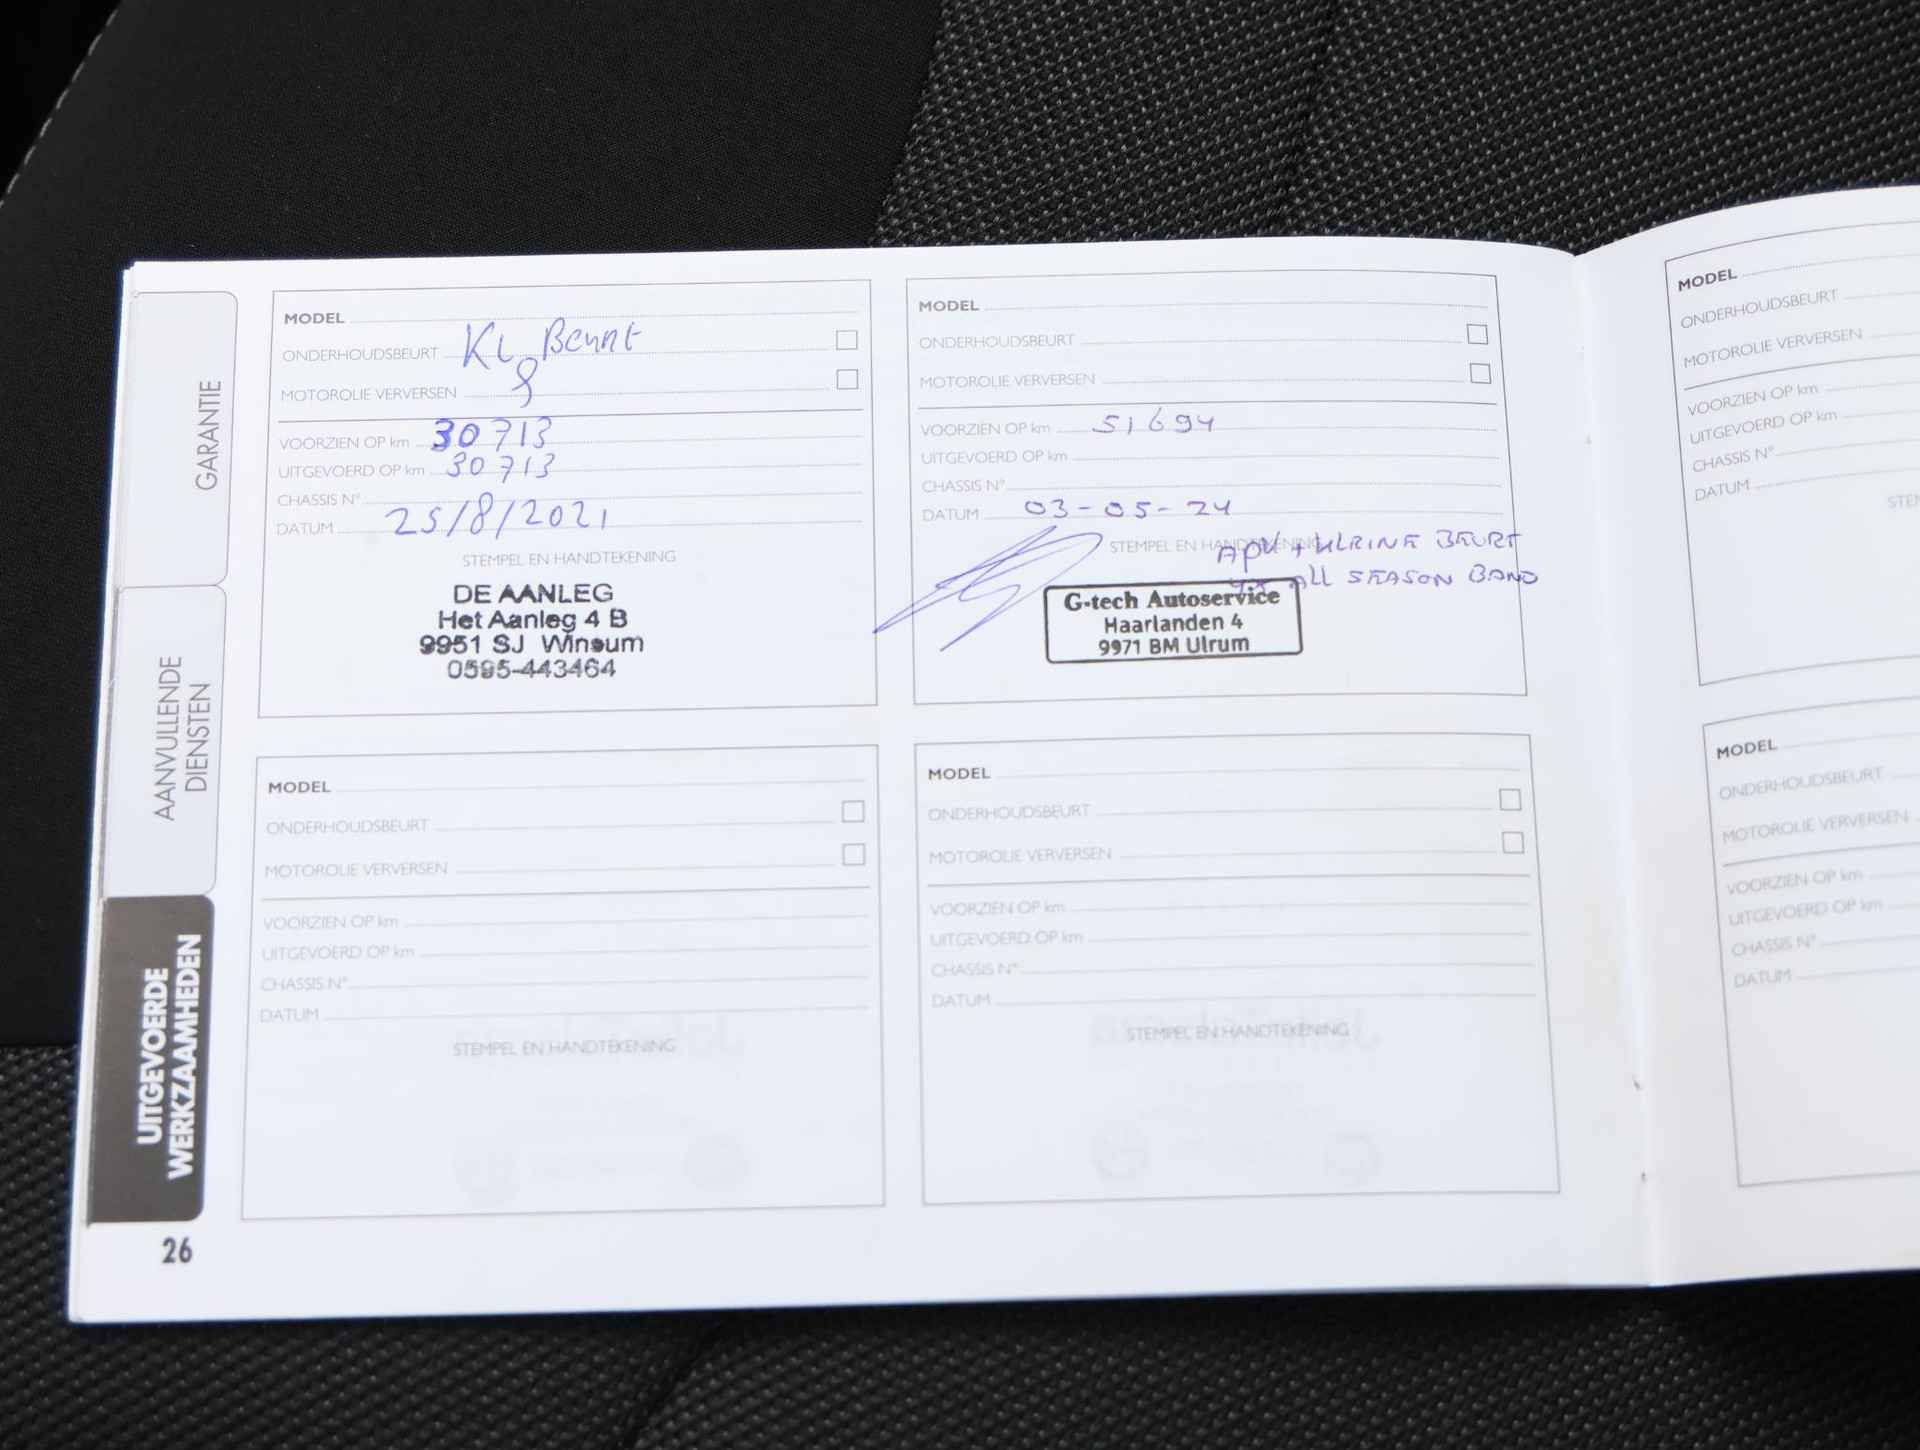 GARANTIE
AANVULLENDE
DIENSTEN
UITGEVOERDE
WERKZAAMHEDEN
26
MODEL
ONDERHOUDSBEURT KL Beurt
MOTOROLIE VERVERSEN
VOORZIEN OP km 30713
UITGEVOERD OP km 30713
CHASSIS N°
DATUM 25/8/2021
STEMPEL EN HANDTEKENING
DE AANLEG
Het Aanleg 4 B
9951 SJ Winsum
0595-443464
MODEL
ONDERHOUDSBEURT
MOTOROLIE VERVERSEN
VOORZIEN OP km 51694
UITGEVOERD OP km
CHASSIS N°
DATUM 03-05-24
STEMPEL EN HANDTEKENING
APK + KLEINE BEURT
4x ALL SEASON BAND
G-tech Autoservice
Haarlanden 4
9971 BM Ulrum
MODEL
ONDERHOUDSBEURT
MOTOROLIE VERVERSEN
VOORZIEN OP km
UITGEVOERD OP km
CHASSIS N°
DATUM
STEMPEL EN HANDTEKENING
MODEL
ONDERHOUDSBEURT
MOTOROLIE VERVERSEN
VOORZIEN OP km
UITGEVOERD OP km
CHASSIS N°
DATUM
STEMPEL EN HANDTEKENING
MODEL
ONDERHOUDSBEURT
MOTOROLIE VERVERSEN
VOORZIEN OP km
UITGEVOERD OP km
CHASSIS N°
DATUM
STEM
MODEL
ONDERHOUDSBEURT
MOTOROLIE VERVERSEN
VOORZIEN OP km
UITGEVOERD OP km
CHASSIS N°
DATUM